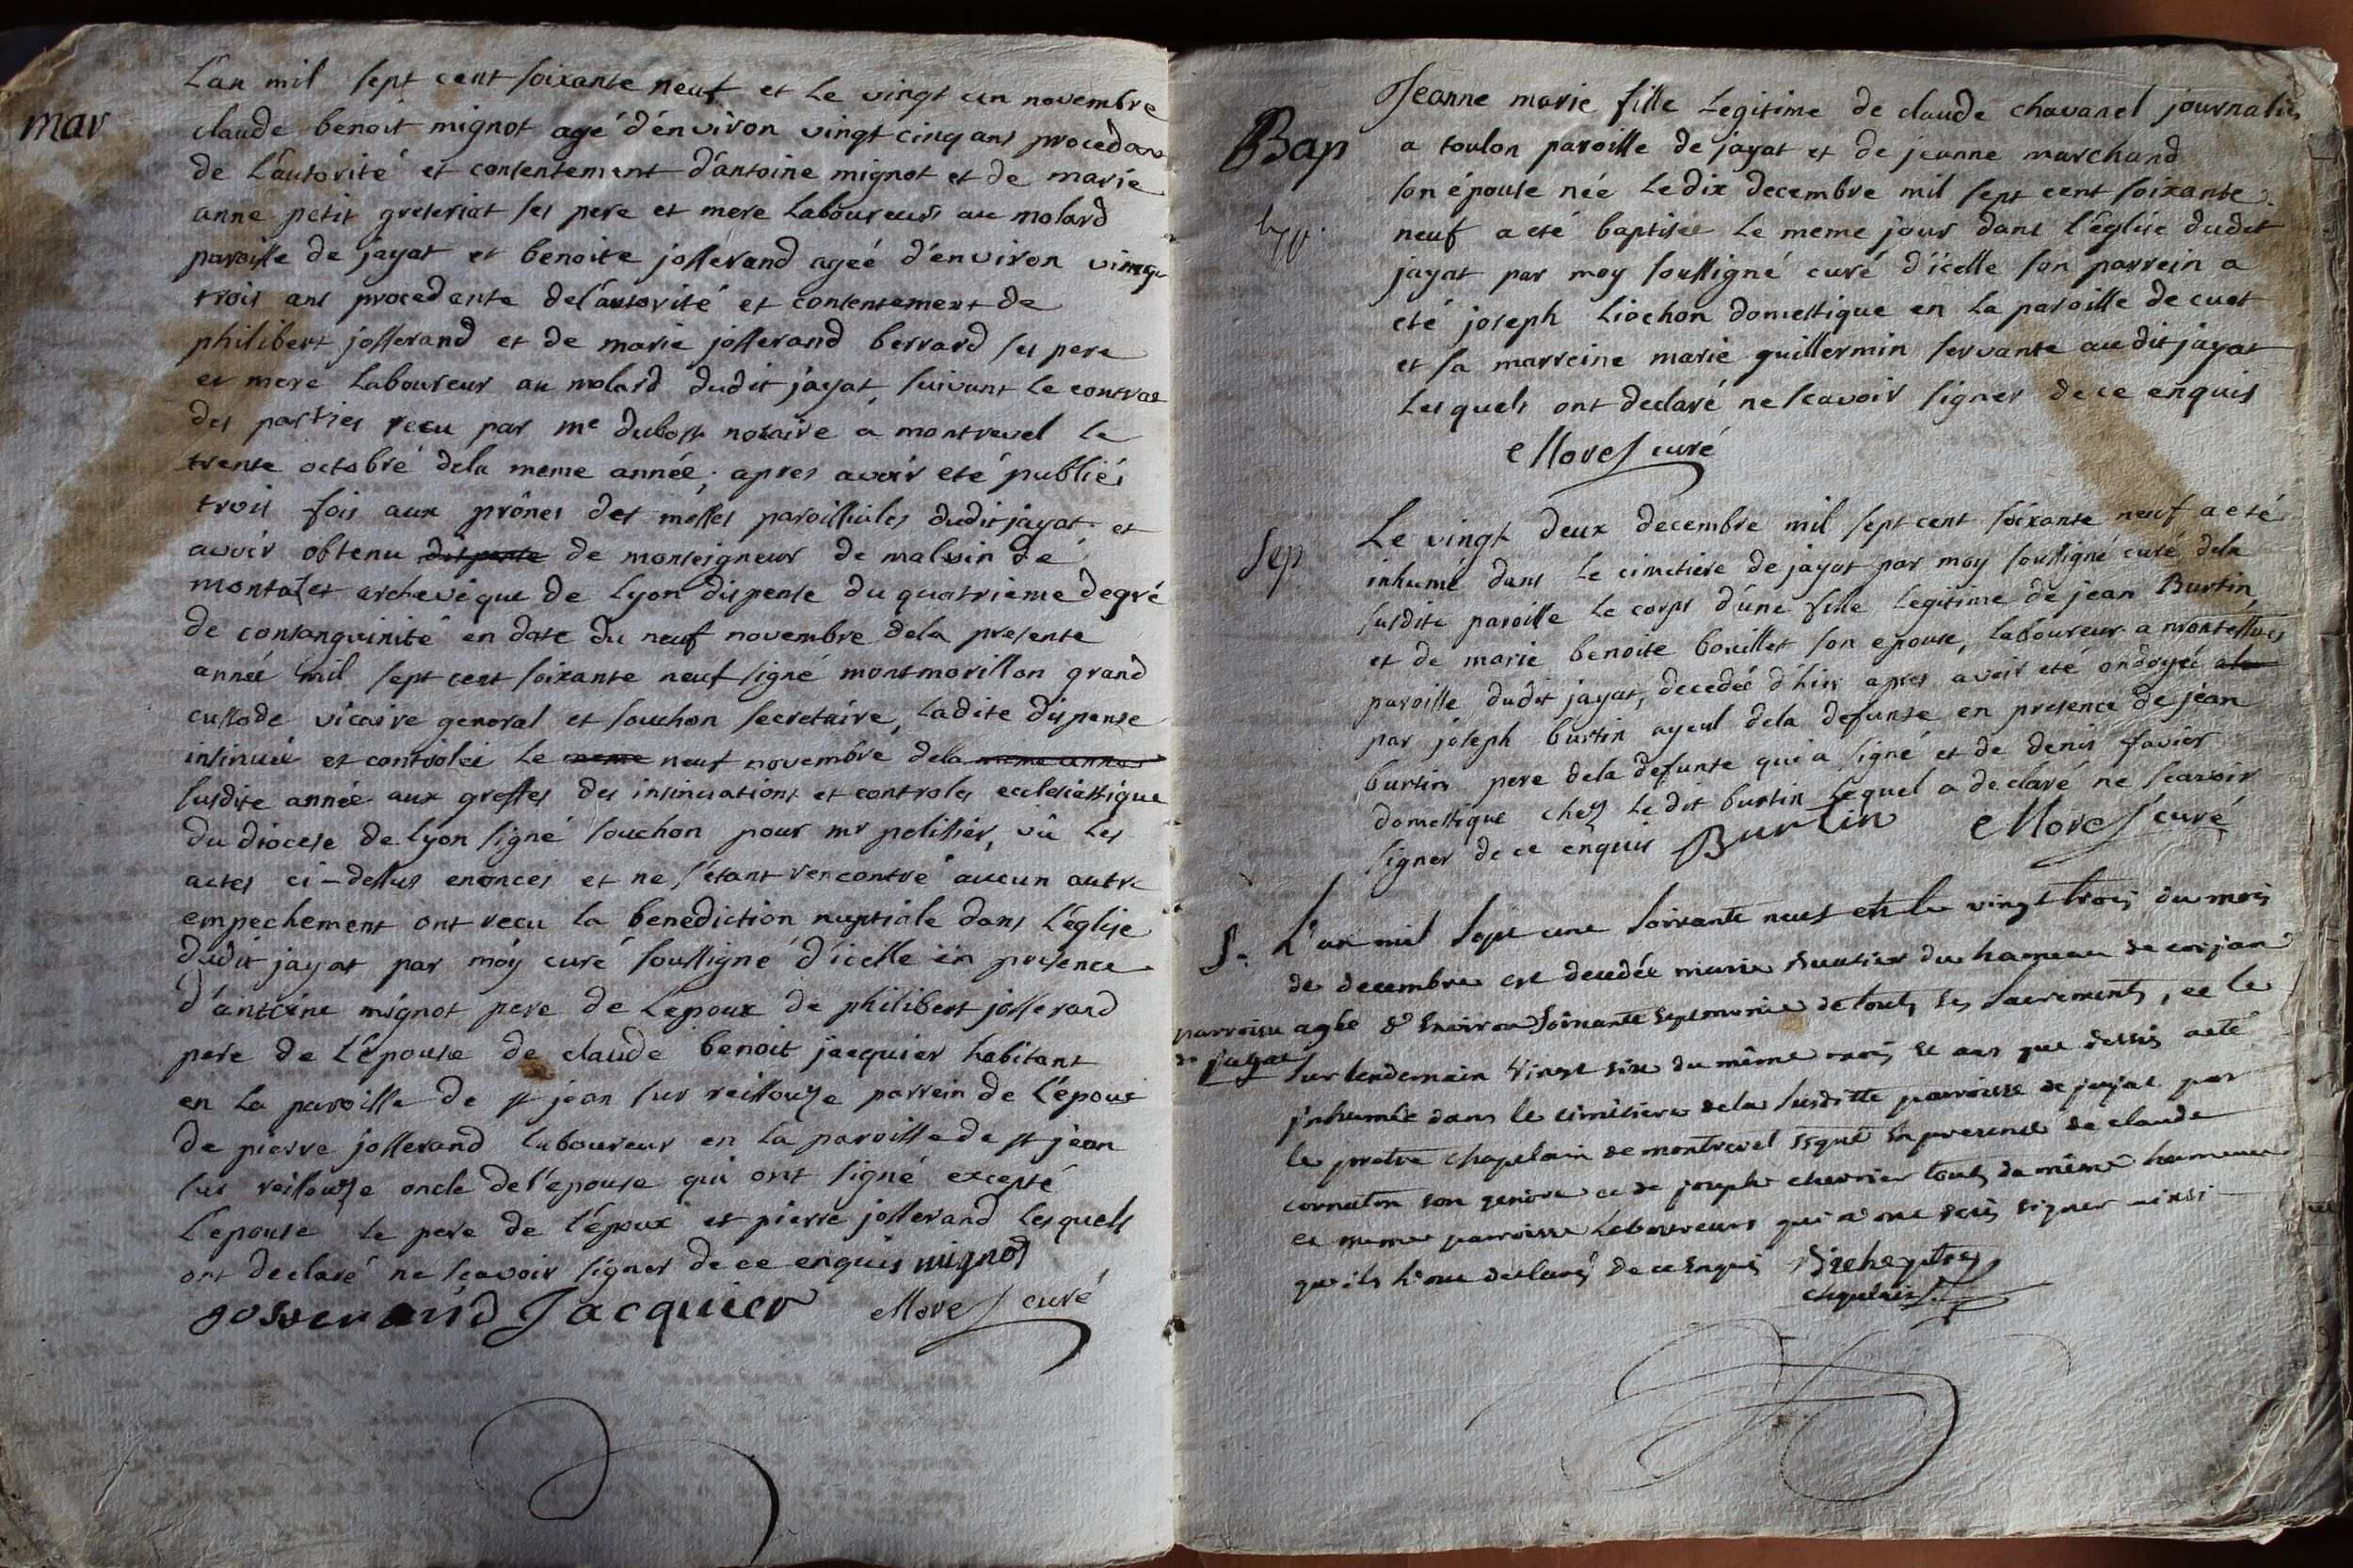 mar
L'an mil sept cent soixante neuf et Le vingt un novembre
claude benoit mignot agé d'environ vingt cinq ans procedant
de L'autorité et consentement d'antoine mignot et de marie
anne petit greseriat ses pere et mere Laboureurs au molard
paroisse de jayat et benoite josserand ageé d'environ vingt
trois ans procedante de l'autorité et consentement de
philibert josserand et de marie josserand berrard ses pere
et mere Laboureur au molard dudit jayat, suivant Le contrat
des parties recu par me dubost notaire a montrevel Le
trente octobre dela meme année; apres avoir eté publiés
trois fois aux prônes des messes paroissiales dudit jayat et
avoir obtenu dispense de monseigneur de malvin de
montazet archevêque de Lyon dispense du quatrieme degré
de consanguinité en date du neuf novembre dela presente
année mil sept cent soixante neuf signé montmorillon grand
custode vicaire general et souchon secretaire, Ladite dispense
insinuée et controlée Le meme neuf novembre dela meme année
susdite année aux greffes des insinuations et controles ecclesiastique
du diocese de Lyon signé souchon pour mr pelissier, vû Les
actes ci-dessus enonces et ne s'etant rencontré aucun autre
empechement ont recu La benediction nuptiale dans L'église
dudit jayat par moy curé soussigné d'icelle en presence
d'antoine mignot pere de Lepoux de philibert josserand
pere de L'épouse de claude benoit jacquier habitant
en La paroisse de st jean sur reissouze parrein de L'époux
de pierre josserand Laboureur en La paroisse de st jean
sur reissouze oncle de l'epouse qui ont signé excepté
L'epouse Le pere de l'époux et pierre josserand Lesquels
ont declaré ne scavoir signer de ce enquis mignot
josserand Jacquier Morel curé
Bap
Jeanne marie fille Legitime de claude chavanel journalier
a toulon paroisse de jayat et de jeanne marchand
son épouse née Le dix decembre mil sept cent soixante
neuf a eté baptisée Le meme jour dans l'église dudit
jayat par moy soussigné curé d'icelle son parrein a
eté joseph Liochon domestique en La paroisse de cuet
et sa marreine marie guillermin servante audit jayat
Lesquels ont declaré ne scavoir signer de ce enquis
Morel curé
Sep
Le vingt deux decembre mil sept cent soixante neuf a eté
inhumé dans Le cimetiere de jayat par moy soussigné curé dela
susdite paroisse Le corps d'une fille Legitime de jean Burtin
et de marie benoite bouillet son epouse, Laboureur a
paroisse dudit jayat, decedée d'hier apres avoir eté ondoyée
par joseph burtin ayeul dela defunte en presence de jean
burtin pere dela defunte qui a signé et de denis favier
domestique chez Ledit burtin Lequel a declaré ne scavoir
signer de ce enquis Burtin Morel curé
S.
L'an mil sept cent soixante neuf et le vingt trois du mois
de decembre est decedée marie du hameau de corjan
parroisse agée d'environ soixante sept munie de touts les sacrements, et le
de jayat surlendemain vingt six du même mois et an que dessus a eté
jnhumée dans le cimitiere de la susditte parroisse de jayat par
le pretre chapelain de montrevel en presence de claude
cornaton son gendre et de joseph chevrier touts du même hameau
et meme parroisse Laboureurs qui n'ont sçu signer ainsi
qu'ils l'ont declaré de ce enquis
chapelain